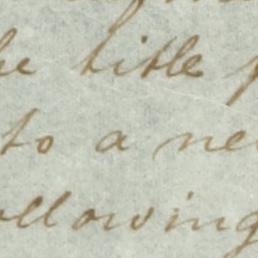 he title
to a ne
ollowing